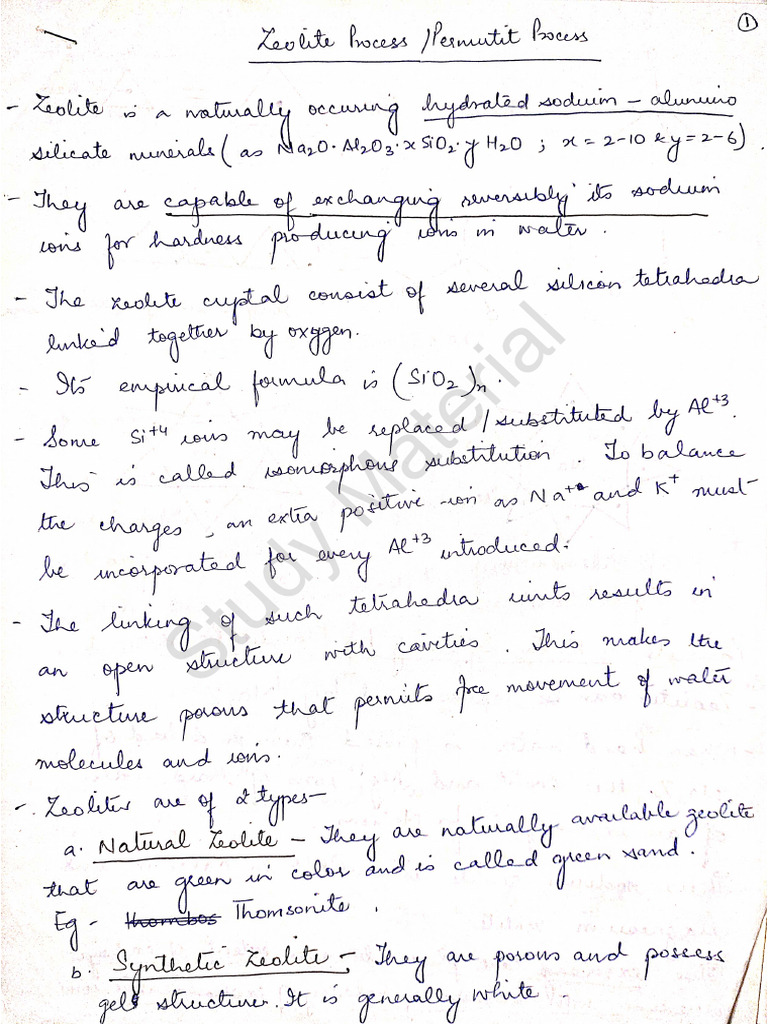 ①
Zeolite Process /Permutit Process
- Zeolite is a naturally occuring hydrated sodium - alumino
silicate minerals ( as Na2O·Al2O3·xSiO2·yH2O ; x = 2-10 & y = 2-6) .
- They are capable of exchanging reversibly its sodium
ions for hardness producing ions in water .
- The zeolite cryptal consist of several silicon tetrahedra
linked together by oxygen.
- Its empirical formula is (SiO2)n .
- Some Si+4 ions may be replaced / substituted by Al+3.
This is called isomorphous substitution . To balance
the charges , an extra positive ion as Na+ and K+ must
be incorporated for every Al+3 introduced.
- The linking of such tetrahedra units results in
an open structure with cavities . This makes the
structure porous that permits free movement of water
molecules and ions.
- Zeolites are of 2 types -
a. Natural Zeolite - They are naturally available zeolite
that are green in color and is called green sand .
Eg - Thombos Thomsonite .
b. Synthetic Zeolite - They are porous and possess
gel structure. It is generally white .
Study Material